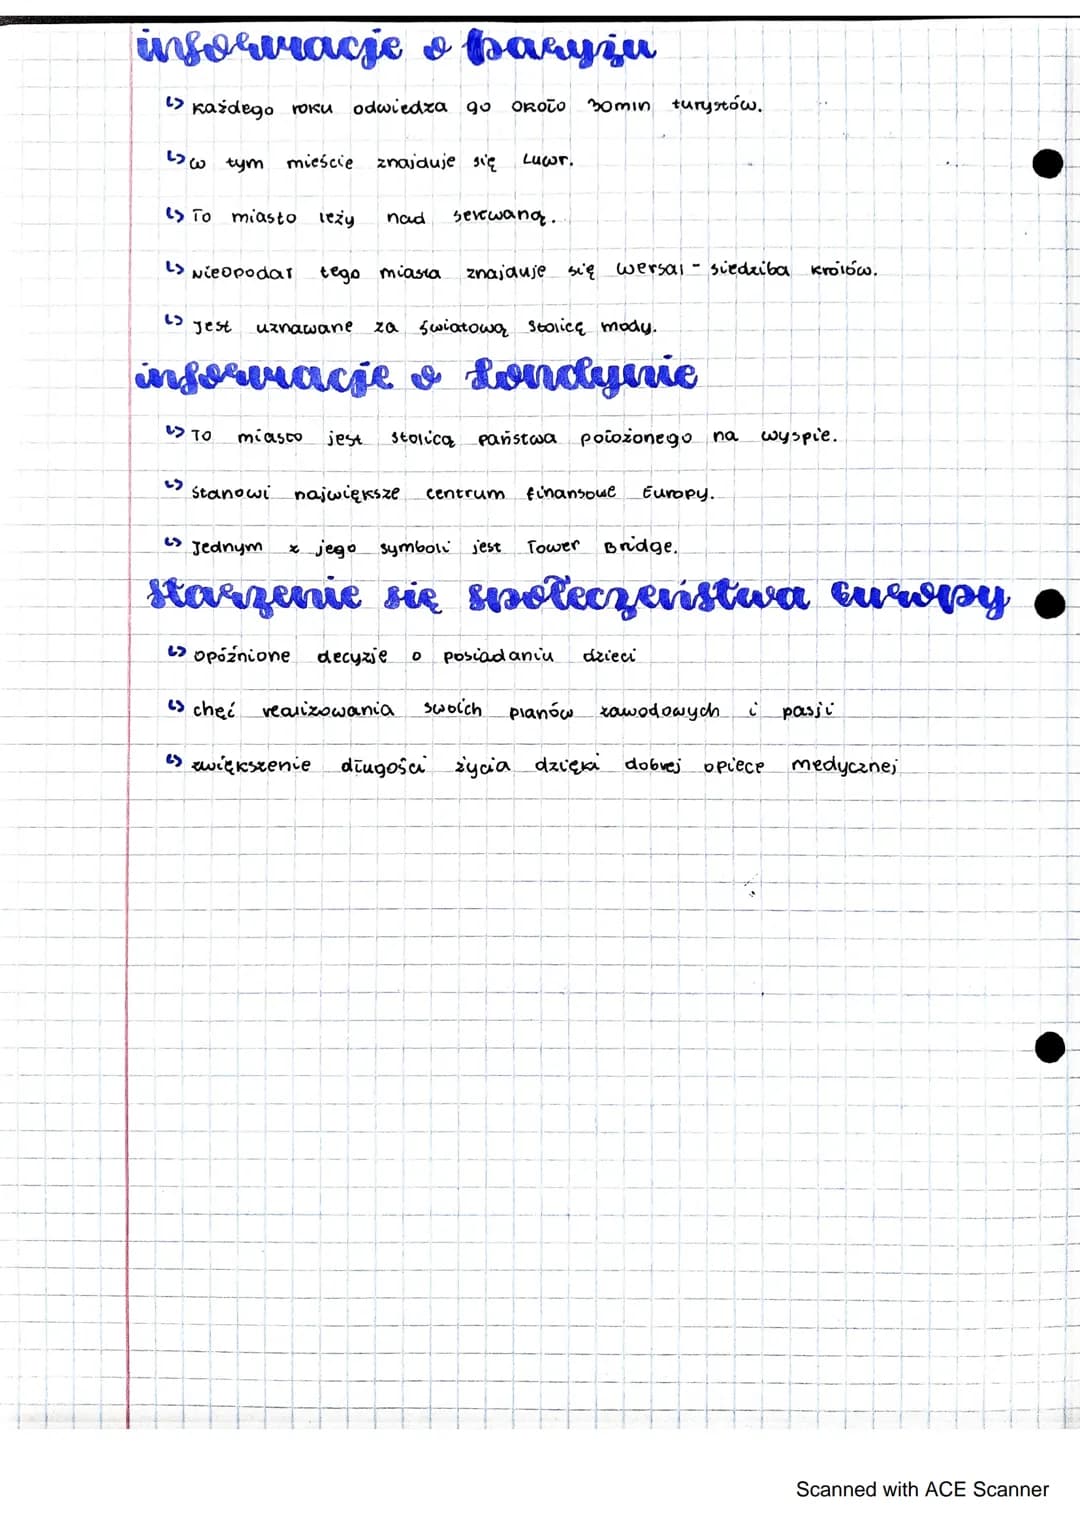 informacje o paryżu
↳ każdego roku odwiedza go około 30mln turystów.
↳ w tym mieście znajduje się Luwr.
↳ To miasto leży nad Sekwaną.
↳ Nieopodal tego miasta znajduje się wersal - siedziba królów.
↳ Jest uznawane za światową stolicę mody.
informacje o Londynie
↳ To miasto jest stolicą państwa położonego na wyspie.
↳ Stanowi największe centrum finansowe Europy.
↳ Jednym z jego symboli jest Tower Bridge.
starzenie się społeczeństwa Europy
↳ opóźnione decyzje o posiadaniu dzieci
↳ chęć realizowania swoich planów zawodowych i pasji
↳ zwiększenie długości życia dzięki dobrej opiece medycznej
Scanned with ACE Scanner